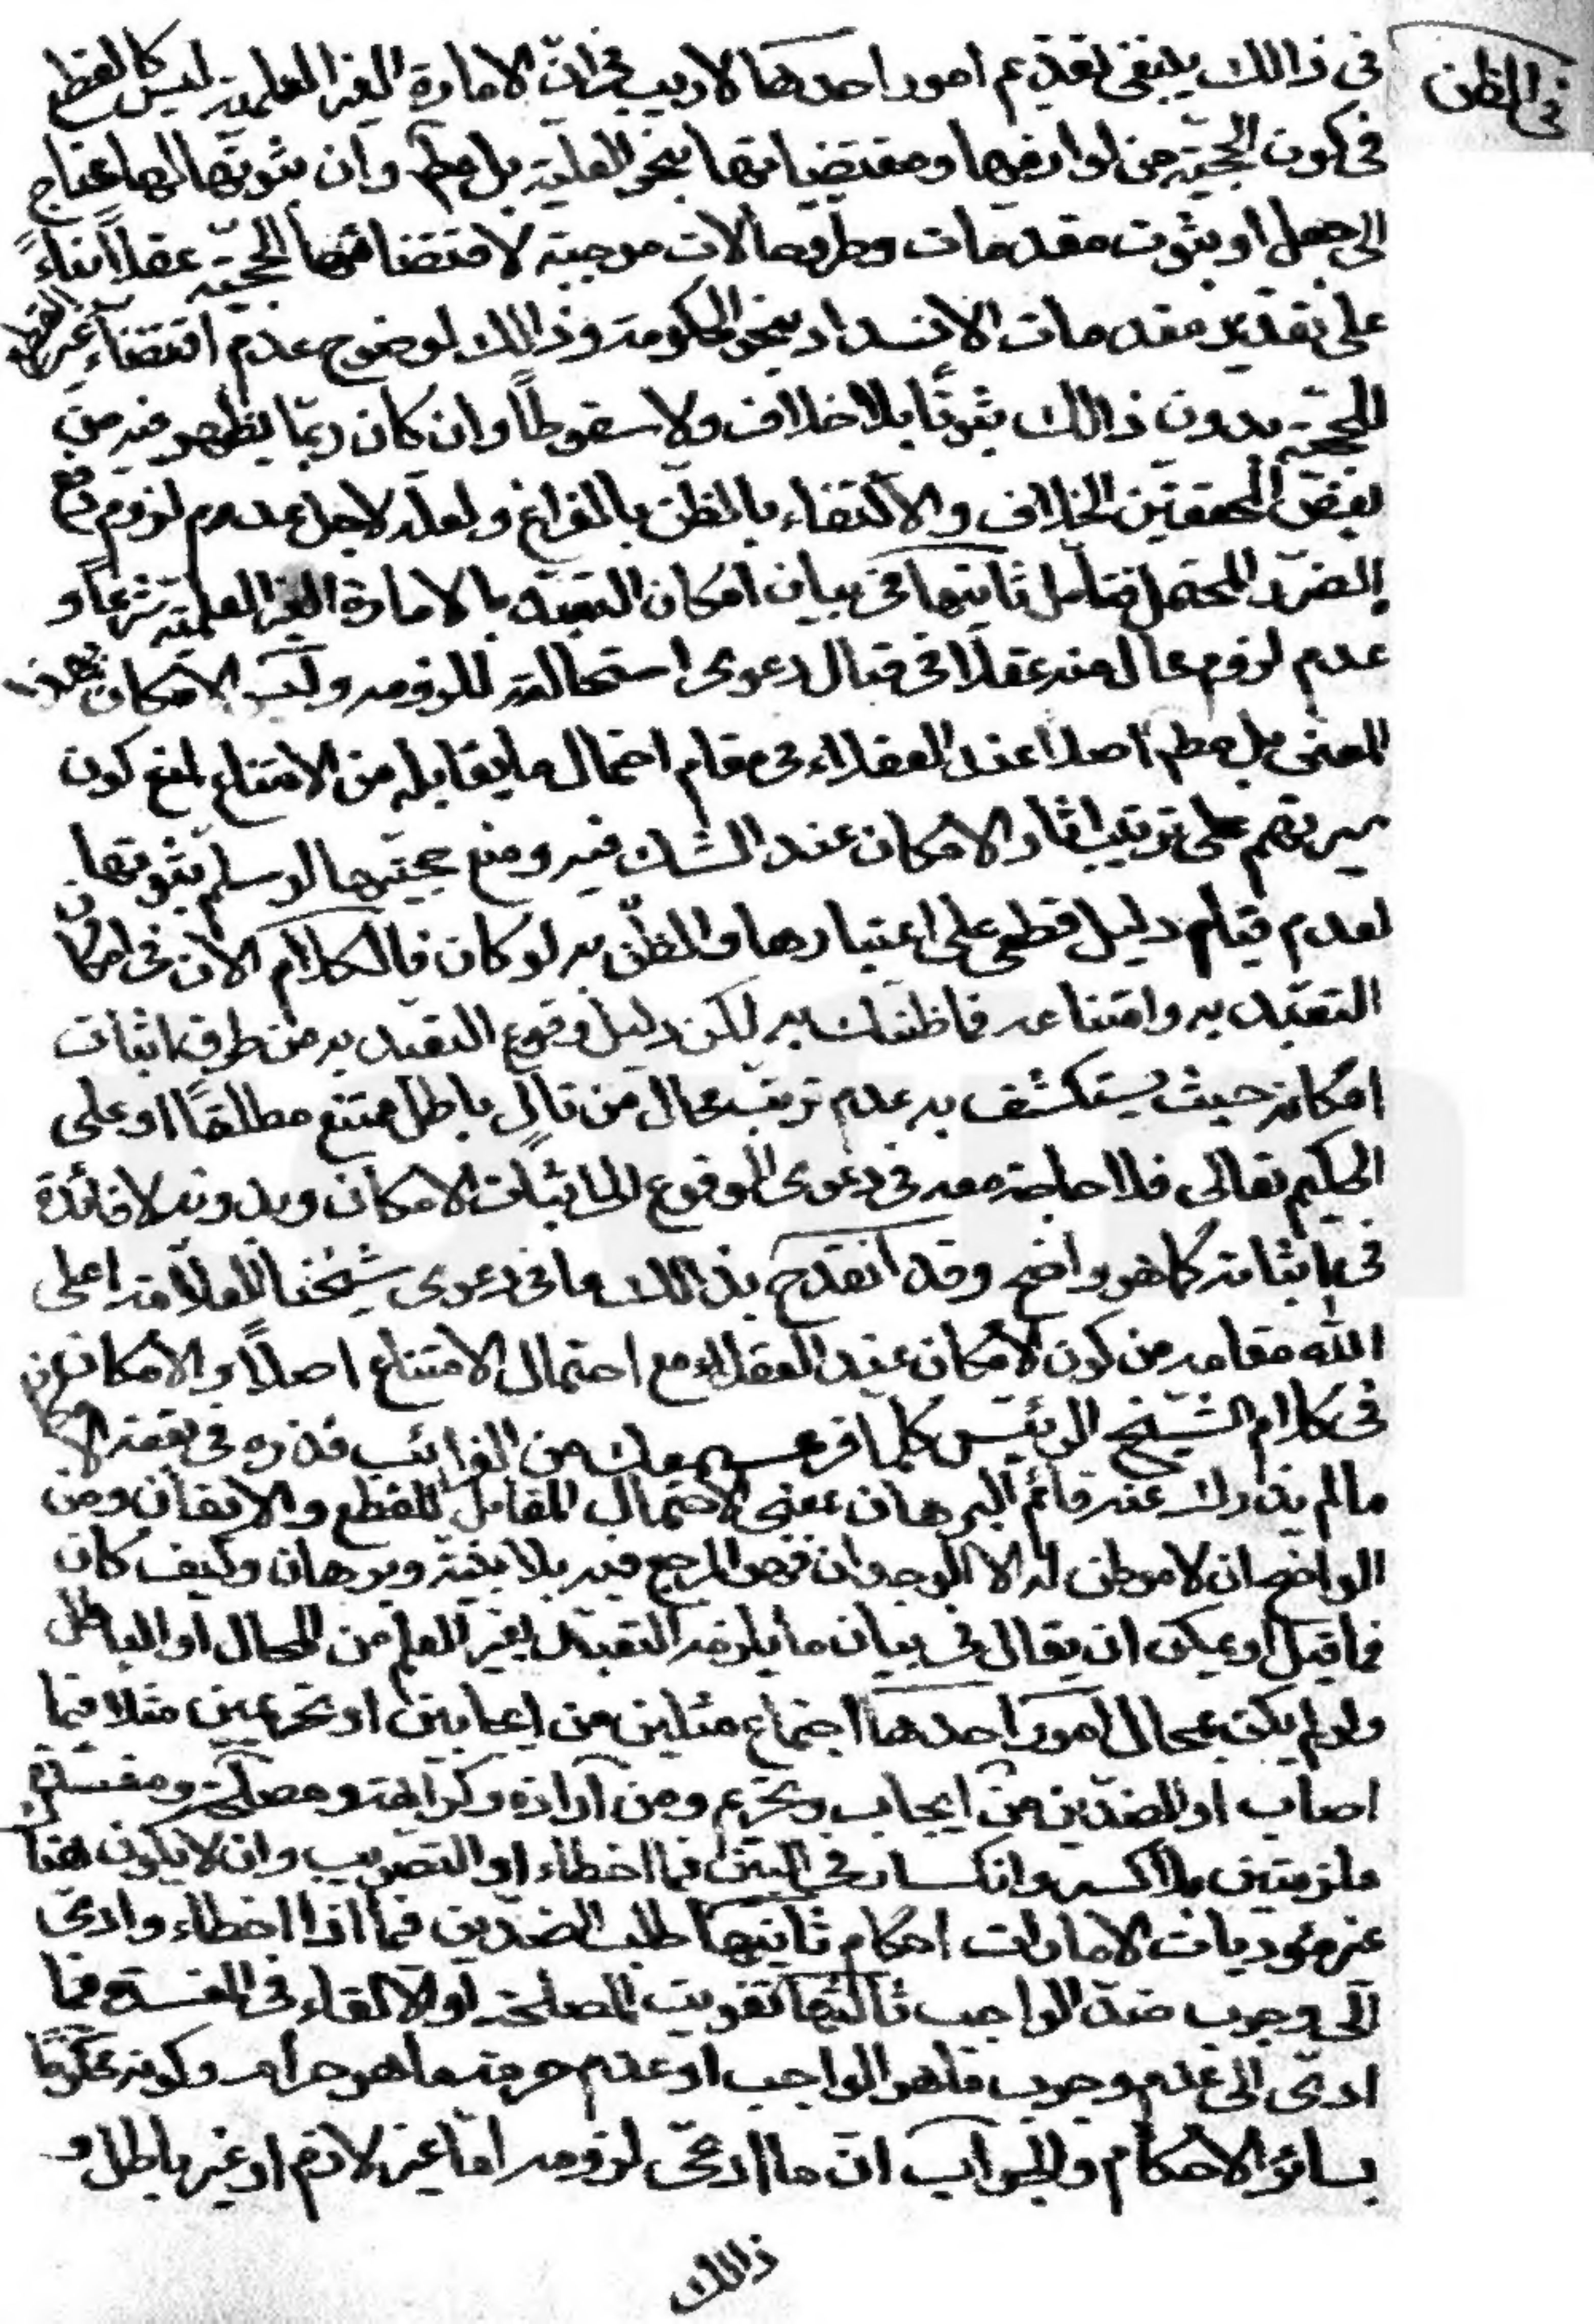 فى الظن
فى ذالك ينبغى تقديم امور احدها لا ريب فى انّ الامارة الغير العلمية ليس كالقطع
فى كون الحجيّة من لوازمها ومقتضياتها بنحو العلية بل مطم وان ثبوتها لها محتاج
الى جعل او بثوت مقدمات وطرو حالات موجبة لاقتضائها الحجيّة عقلاً بناءً
على تقدير مقدمات الانسداد بنحو الحكومة وذالك لوضوح عدم اقتضاء غير القطع
للحجيّة بدون ذالك ثبوتًا بلا خلاف ولا سقوطًا وان كان ربّما يظهر فيه من
بعض المحققين الخلاف والاكتفاء بالظن بالفراغ ولعله لاجل عدم لزوم دفع
الضرر المحتمل فتامل ثانيها فى بيان امكان التعبد بالامارة الغير العلمية شرعاً و
عدم لزوم محال منه عقلًا فى قبال دعوى استحالته للزومه وليس الامكان بهذا
المعنى بل مطم اصلا عند العقلاء فى مقام احتمال ما يقابله من الامتناع لمنع كون
سيرتهم على ترتيب اثار الامكان عند الشك فيه ومنع حجيتها لو سلم ثبوتها
لعدم قيام دليل قطعى على اعتبارها والظن به لو كان فالكلام الان فى امكان
التعبّد به وامتناعه فما ظنك به لكن دليل وقوع التعبد به من طرق اثبات
امكانه حيث يستكشف به عدم ترتب محال من تالٍ باطل ممتنع مطلقًا او على
الحكيم تعالى فلا حاجة معه فى دعوى الوقوع الى اثبات الامكان وبدونه لا فائدة
فى اثباته كما هو واضح وقد انقدح بذالك ما فى دعوى شيخنا العلامة اعلى
الله مقامه من كون الامكان عند العقلاء مع احتمال الامتناع اصلاً والامكان
فى كلام الشيخ الرئيس كلما قرع سمعك من الغرائب فذره فى بقعة الامكان
ما لم يذدك عنه قائم البرهان بمعنى الاحتمال المقابل للقطع والايقان ومن
الواضح ان لا موطن له الا الوجدان فهو المرجع فيه بلا بيّنة وبرهان وكيف كان
فما قيل او يمكن ان يقال فى بيان ما يلزمه التعبّد بغير العلم من المحال او الباطل
ولو لم يكن بمحال امور احدها اجتماع مثلين من ايجابين او تحريمين مثلا فيما
اصاب او الضدّين من ايجاب وتحريم ومن ارادة وكراهة ومصلحة ومفسدة
ملزمتين بلا كسر وانكسار فى البين فيما اخطاء او التصويب وان لا يكون هناك
غير مؤديات الامارات احكام ثانيها طلب الضدّين فيما اذا اخطاء وادىّ
الى وجوب ضد الواجب ثالثها تفويت المصلحة او الالقاء فى المفسدة فيما
ادىّ الى عدم وجوب ما هو الواجب او عدم حرمة ما هو حرام وكونه محكومًا
بسائر الاحكام والجواب ان ما ادعى لزومه اما غير لازم او غير باطل و
ذالك